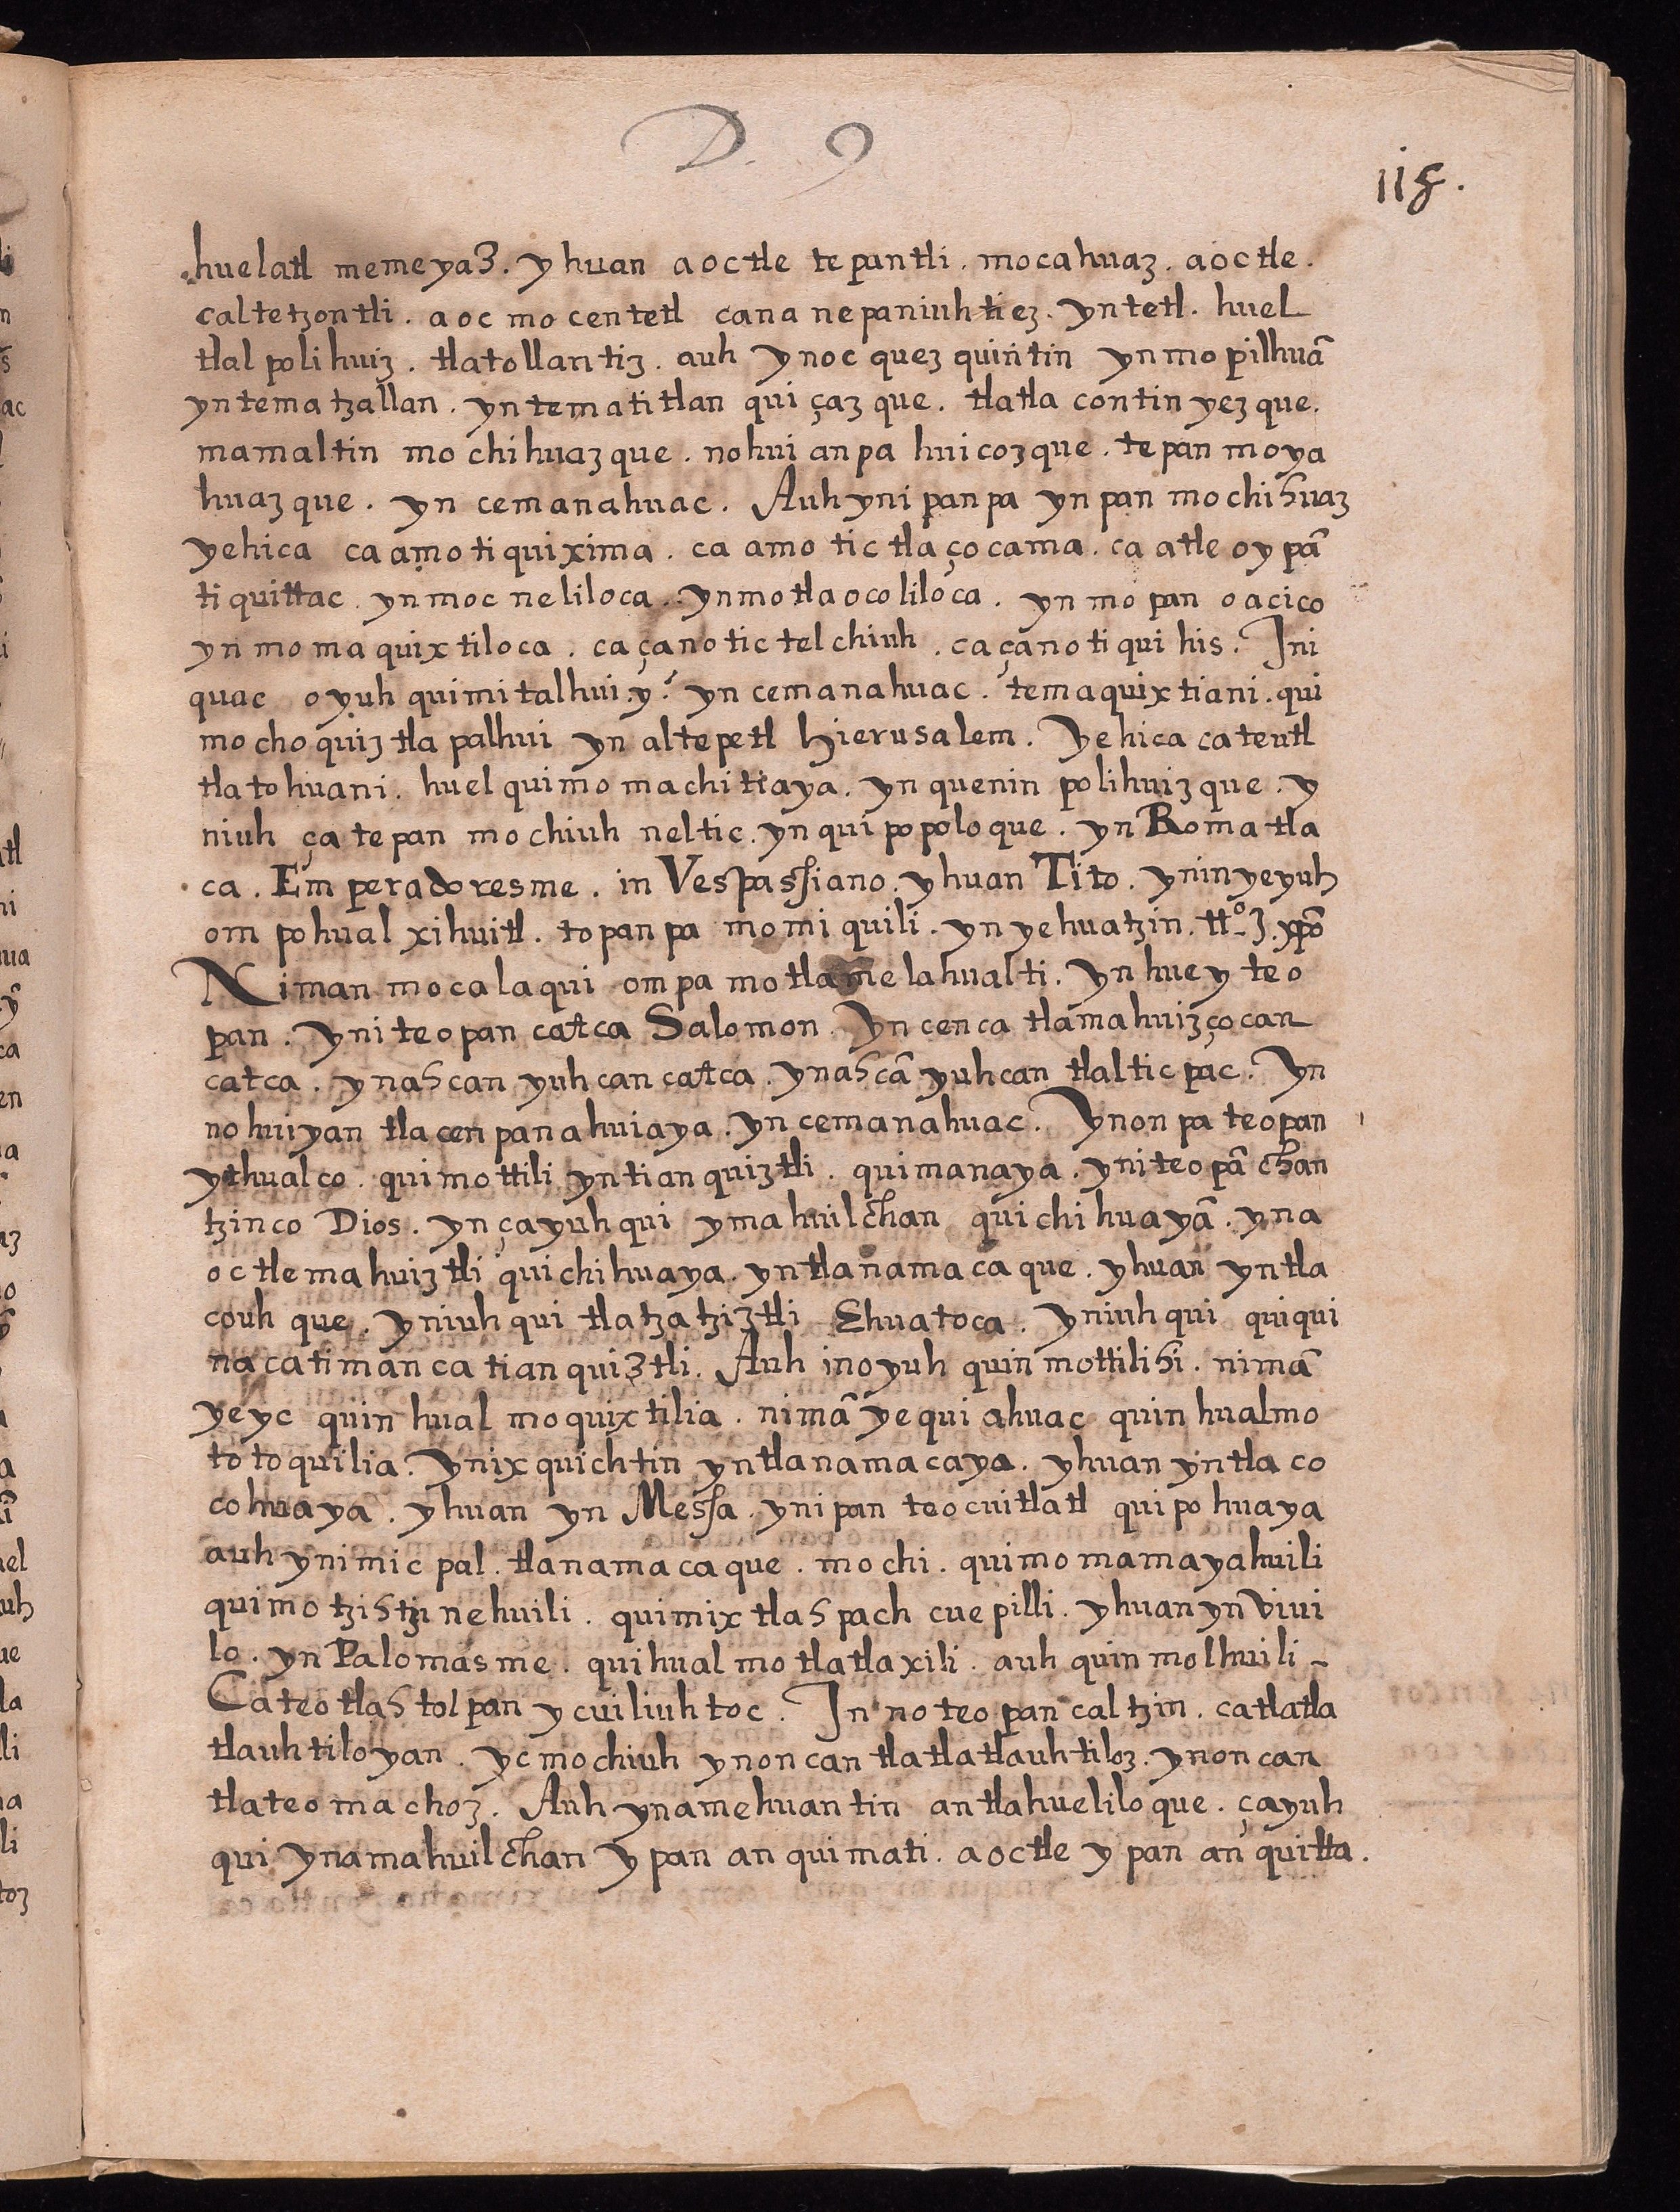 D. 9
118.
huelatl memeyaz. yhuan aoctle tepantli. mocahuaz. aoctle.
caltetzontli. aoc mo centetl cana nepaniuhtiez. yntetl. huel
tlal polihuiz. tlatollantiz. auh ynoc quezquintin ynmopilhuã
yntematzallan. yntematitlan quiçazque. tlatlacontinyezque.
mamaltin mochihuazque. nohuianpa huicozque. tepanmoya
huazque. yn cemanahuac. Auh ynipanpa ynpan mochihuaz
yehica ca amo tiquixima. ca amo tictlaçocama. ca atle oypã
tiquittac. ynmocneliloca. ynmotlaocoliloca. yn mo pan oacico
yn momaquixtiloca. caçanotictelchiuh. caçanotiquihis. Ini
quac oyuh quimitalhui.y? yn cemanahuac. temaquixtiani. qui
mochoquiztlapalhui yn altepetl hierusalem. Yehica cateutl
tlatohuani. huelquimomachitiaya. yn quenin polihuizque. y
niuh çatepan mochiuh neltic. ynquipopoloque. yn Romatla
ca. Emperadoresme. in Vespassiano. yhuan Tito. yninyeyuh
ompohualxihuitl. topanpa momiquili. yn yehuatzin. tt.º J. xpõ
Niman mocalaqui ompa motlamelahualti. yn huey teo
pan. yniteopan catca Salomon. Yn cenca tlamahuizçocan
catca. ynascan yuhcan catca. ynascã yuhcan tlalticpac. Yn
nohuiyan tlacenpanahuiaya. yn cemanahuac. Ynonpa teopan
ythualco. quimottili yntianquiztli. quimanaya. yniteopã chan
tzinco Dios. ynçayuhqui ymahuilchan quichihuayã. yna
octlemahuiztli quichihuaya. yntlanamacaque. yhuan yntla
couhque. yniuhqui tlatzatziztli Ehuatoca. yniuhqui quiqui
nacatimanca tianquiztli. Auh inoyuh quinmottilihi. nimã
yeyc quinhualmoquixtilia. nimã yequiahuac quinhualmo
totoquilia. Ynixquichtin yntlanamacaya. yhuan yntlaco
cohuaya. yhuan yn Messa. ynipan teocuitlatl quipohuaya
auh ynimicpal. tlanamacaque. mochi. quimomamayahuili
quimotzistzinehuili. quimixtlaspachcuepilli. yhuanynviui
lo. yn Palomasme. quihualmotlatlaxili. auh quinmolhuili –
Cateotlastolpan ycuiliuhtoc. In noteopancaltzin. catlatla
tlauhtiloyan. yc mochiuh ynoncan tlatlatlauhtiloz. ynoncan
tlateomachoz. Auh ynamehuantin antlahueliloque. çayuh
qui ynamahuilchan ypan anquimati. aoctle ypan anquitta.